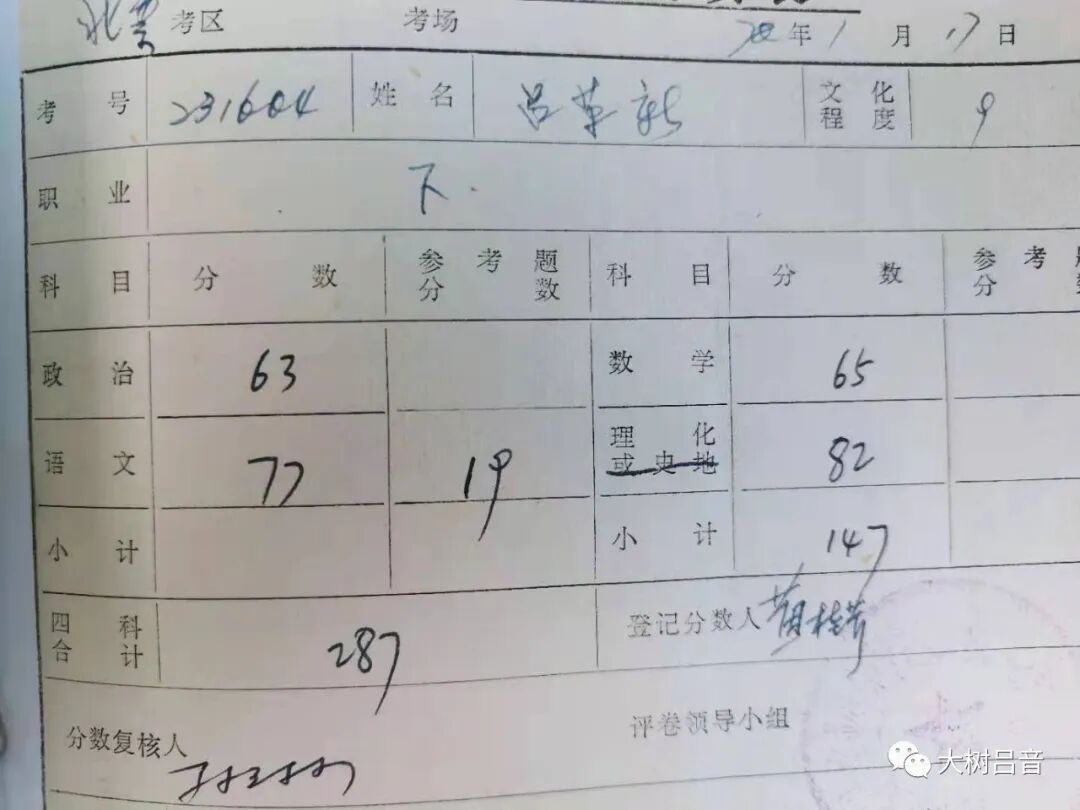 考区 考场 年 1 月 17 日
考号 231604 姓名 吕革新 文化程度 9
职业 下.
科目 分数 参考题分数 科目 分数 参考
政治 63 数学 65
语文 77 19 理化或史地 82
小计 小计 147
四科合计 287 登记分数人
分数复核人 评卷领导小组
大树吕音